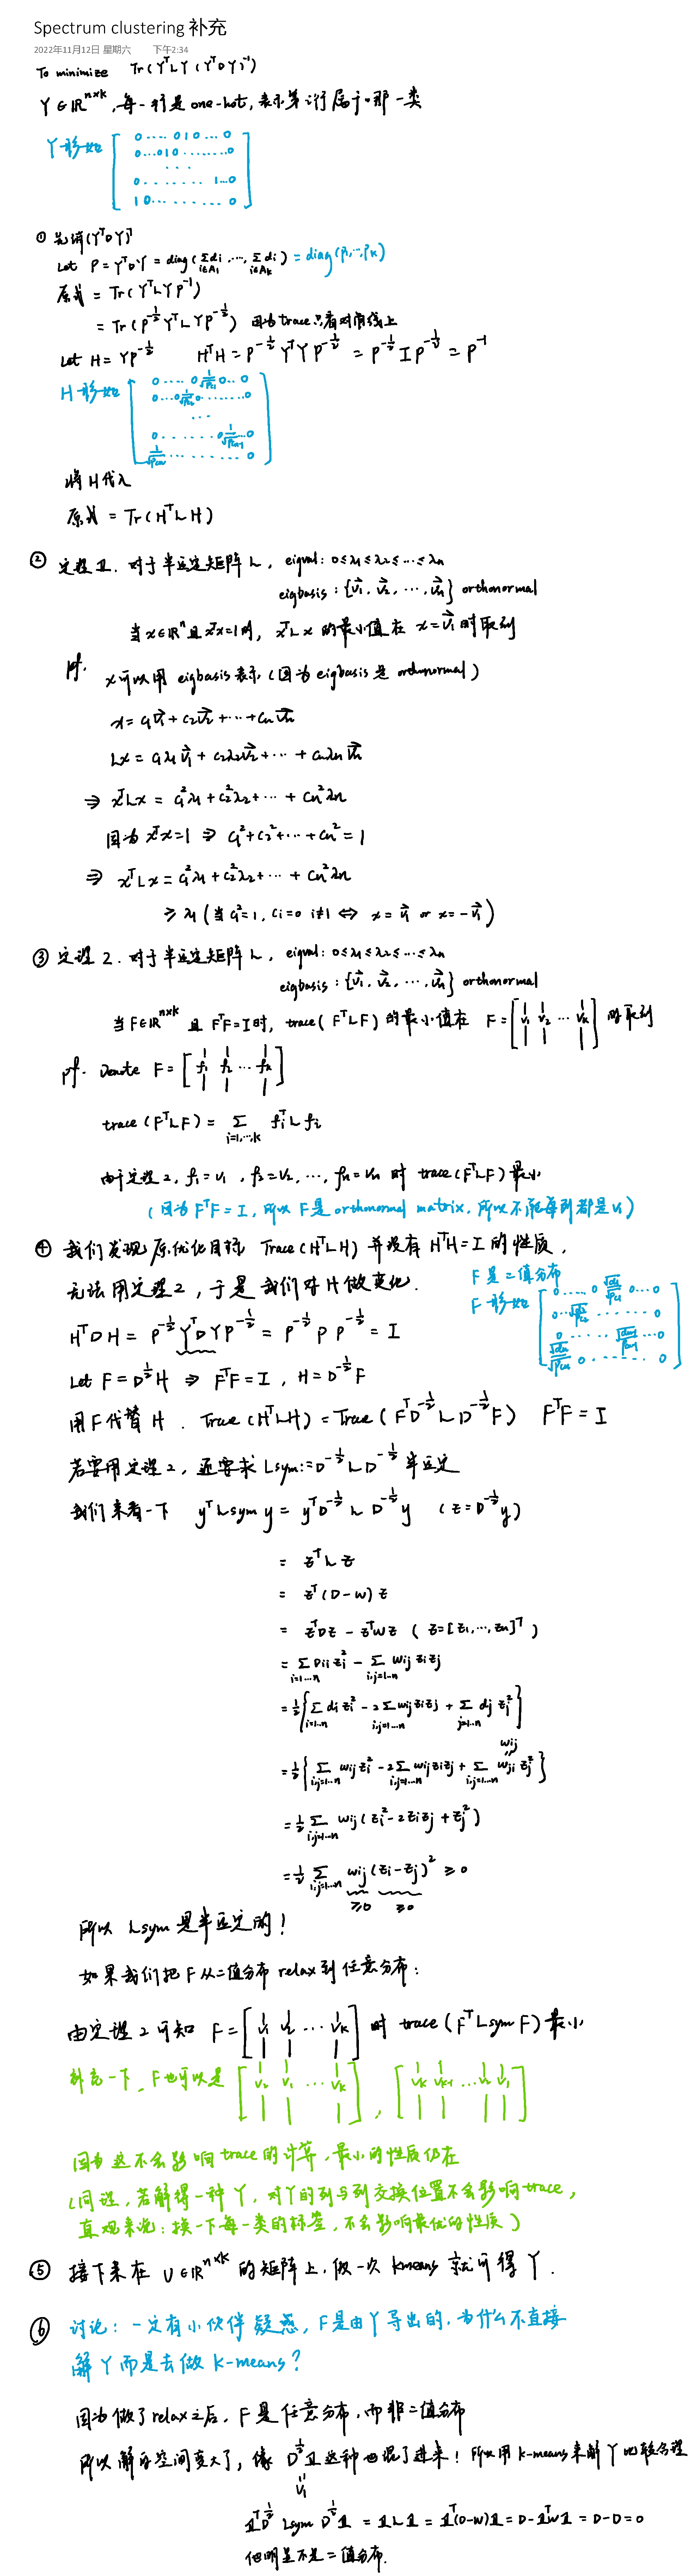 Spectrum clustering 补充
2022年11月12日 星期六 下午2:34
To minimize Tr(YᵀLY(YᵀDY)⁻¹)
Y∈ℝⁿˣᵏ, 每一行是one-hot, 表示第i行属于哪一类
Y形如 [ 0 .... 0 1 0 ... 0
0 ... 0 1 0 ........ 0
...
0 ....... 1 ... 0
1 0 ......... 0 ]
① 先消(YᵀDY)⁻¹
Let P = YᵀDY = diag(Σ_{i∈A₁} di, ..., Σ_{i∈Aₖ} di) = diag(P₁, ..., Pₖ)
原式 = Tr(YᵀLYP⁻¹)
= Tr(P^{-1/2}YᵀLYP^{-1/2}) 因为trace只看对角线上
Let H = YP^{-1/2} HᵀH = P^{-1/2}YᵀYP^{-1/2} = P^{-1/2} I P^{-1/2} = P⁻¹
H形如
将H代入
原式 = Tr(HᵀLH)
② 定理1. 对于半正定矩阵L, eigval: 0≤λ₁≤λ₂≤...≤λn
eigbasis: {v₁, v₂, ..., vn} orthonormal
当x∈ℝⁿ且xᵀx=1时, xᵀLx的最小值在 x=v₁时取到
pf. x可以用eigbasis表示(因为eigbasis是orthonormal)
x = c₁v₁ + c₂v₂ + ... + cnvn
Lx = c₁λ₁v₁ + c₂λ₂v₂ + ... + cnλnvn
⇒ xᵀLx = c₁²λ₁ + c₂²λ₂ + ... + cn²λn
因为xᵀx=1 ⇒ c₁² + c₂² + ... + cn² = 1
⇒ xᵀLx = c₁²λ₁ + c₂²λ₂ + ... + cn²λn
≥ λ₁ (当c₁²=1, ci=0 i≠1 ⇔ x=v₁ or x=-v₁)
③ 定理2. 对于半正定矩阵L, eigval: 0≤λ₁≤λ₂≤...≤λn
eigbasis: {v₁, v₂, ..., vn} orthonormal
当F∈ℝⁿˣᵏ 且 FᵀF=I时, trace(FᵀLF)的最小值在 F=[v₁ v₂ ... vₖ] 时取到
pf. Denote F = [f₁ f₂ ... fₖ]
trace(FᵀLF) = Σ_{i=1,...,k} fiᵀL fi
由于定理2, f₁=v₁, f₂=v₂, ..., fn=vn 时 trace(FᵀLF)最小
(因为FᵀF=I, 所以F是orthonormal matrix, 所以不能每列都是v₁)
④ 我们发现原优化目标 Trace(HᵀLH) 并没有HᵀH=I的性质,
无法用定理2, 于是我们对H做变化.
F是二值分布
F形如
HᵀDH = P^{-1/2}YᵀDYP^{-1/2} = P^{-1/2} P P^{-1/2} = I
Let F = D^{1/2}H ⇒ FᵀF = I, H = D^{-1/2}F
用F代替H. Trace(HᵀLH) = Trace(FᵀD^{-1/2}LD^{-1/2}F) FᵀF = I
若要用定理2, 还要求Lsym := D^{-1/2}LD^{-1/2} 半正定
我们来看一下 yᵀLsym y = yᵀD^{-1/2} L D^{-1/2}y (z = D^{-1/2}y)
= zᵀLz
= zᵀ(D-W)z
= zᵀDz - zᵀWz (z=[z₁, ..., zn]ᵀ)
= Σ_{i=1...n} Dii zi² - Σ_{i,j=1...n} wij zi zj
= ½{Σ_{i=1...n} di zi² - 2Σ_{i,j=1...n} wij zi zj + Σ_{j=1...n} dj zj²}
wij
= ½{Σ_{i,j=1...n} wij zi² - 2Σ_{i,j=1...n} wij zi zj + Σ_{i,j=1...n} wji zj²}
= ½ Σ_{i,j=1...n} wij(zi² - 2zi zj + zj²)
= ½ Σ_{i,j=1...n} wij(zi - zj)² ≥ 0
≥0 ≥0
所以 Lsym是半正定的!
如果我们把F从二值分布relax到任意分布:
由定理2可知 F = [v₁ v₂ ... vₖ] 时 trace(FᵀLsym F)最小
补充一下, F也可以是 [v₂ v₁ ... vₖ], [vₖ vₖ₋₁ ... v₂ v₁]
因为这不会影响trace的计算, 最小的性质仍在
(同理, 若解得一种Y, 对Y的列与列交换位置不会影响trace,
直观来说: 换一下每一类的标签, 不会影响最优的性质)
⑤ 接下来在 U∈ℝⁿˣᵏ 的矩阵上, 做一次 kmeans 就可得Y.
⑥ 讨论: 一定有小伙伴疑惑, F是由Y导出的, 为什么不直接
解Y而是去做K-means?
因为做了relax之后, F是任意分布, 而非二值分布
所以解的空间变大了, 像 D^{1/2}𝟙 这种也混了进来! 所以用k-means来解Y比较合理
v₁
𝟙ᵀD^{1/2} Lsym D^{1/2}𝟙 = 𝟙L𝟙 = 𝟙ᵀ(D-W)𝟙 = D-𝟙ᵀW𝟙 = D-D = 0
但明显不是二值分布.